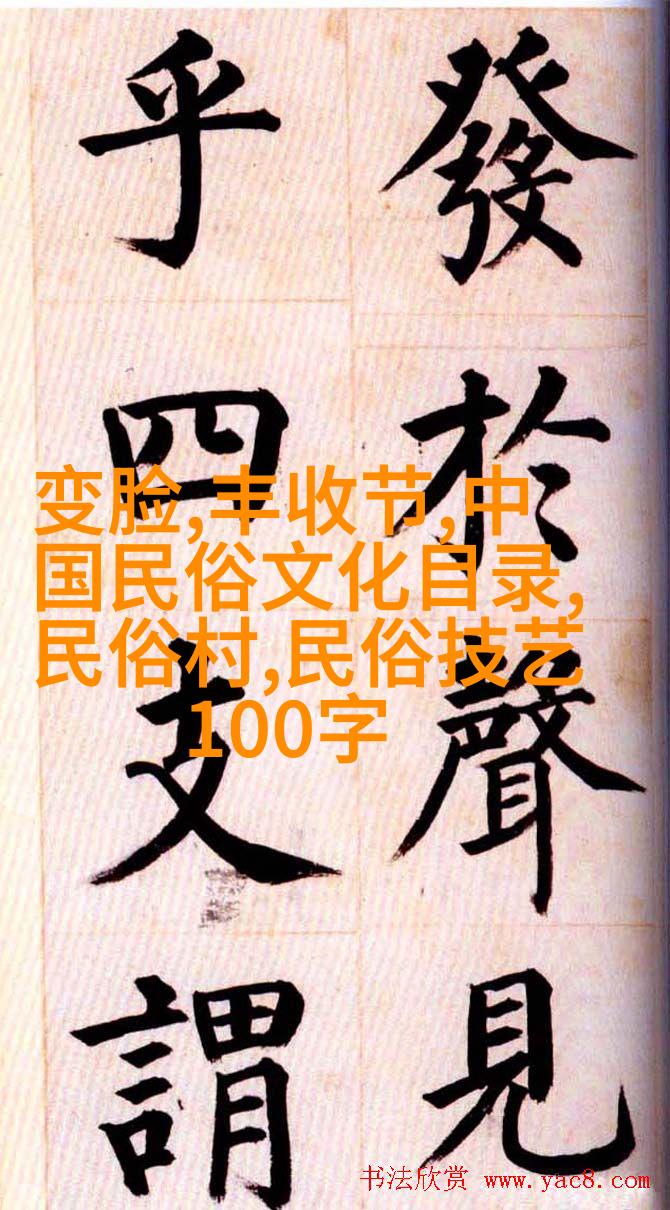 發於聲見
乎四支謂
变脸,丰收节,中
国民俗文化目录,
民俗村,民俗技艺
100字
书法欣赏 www.yac8.com